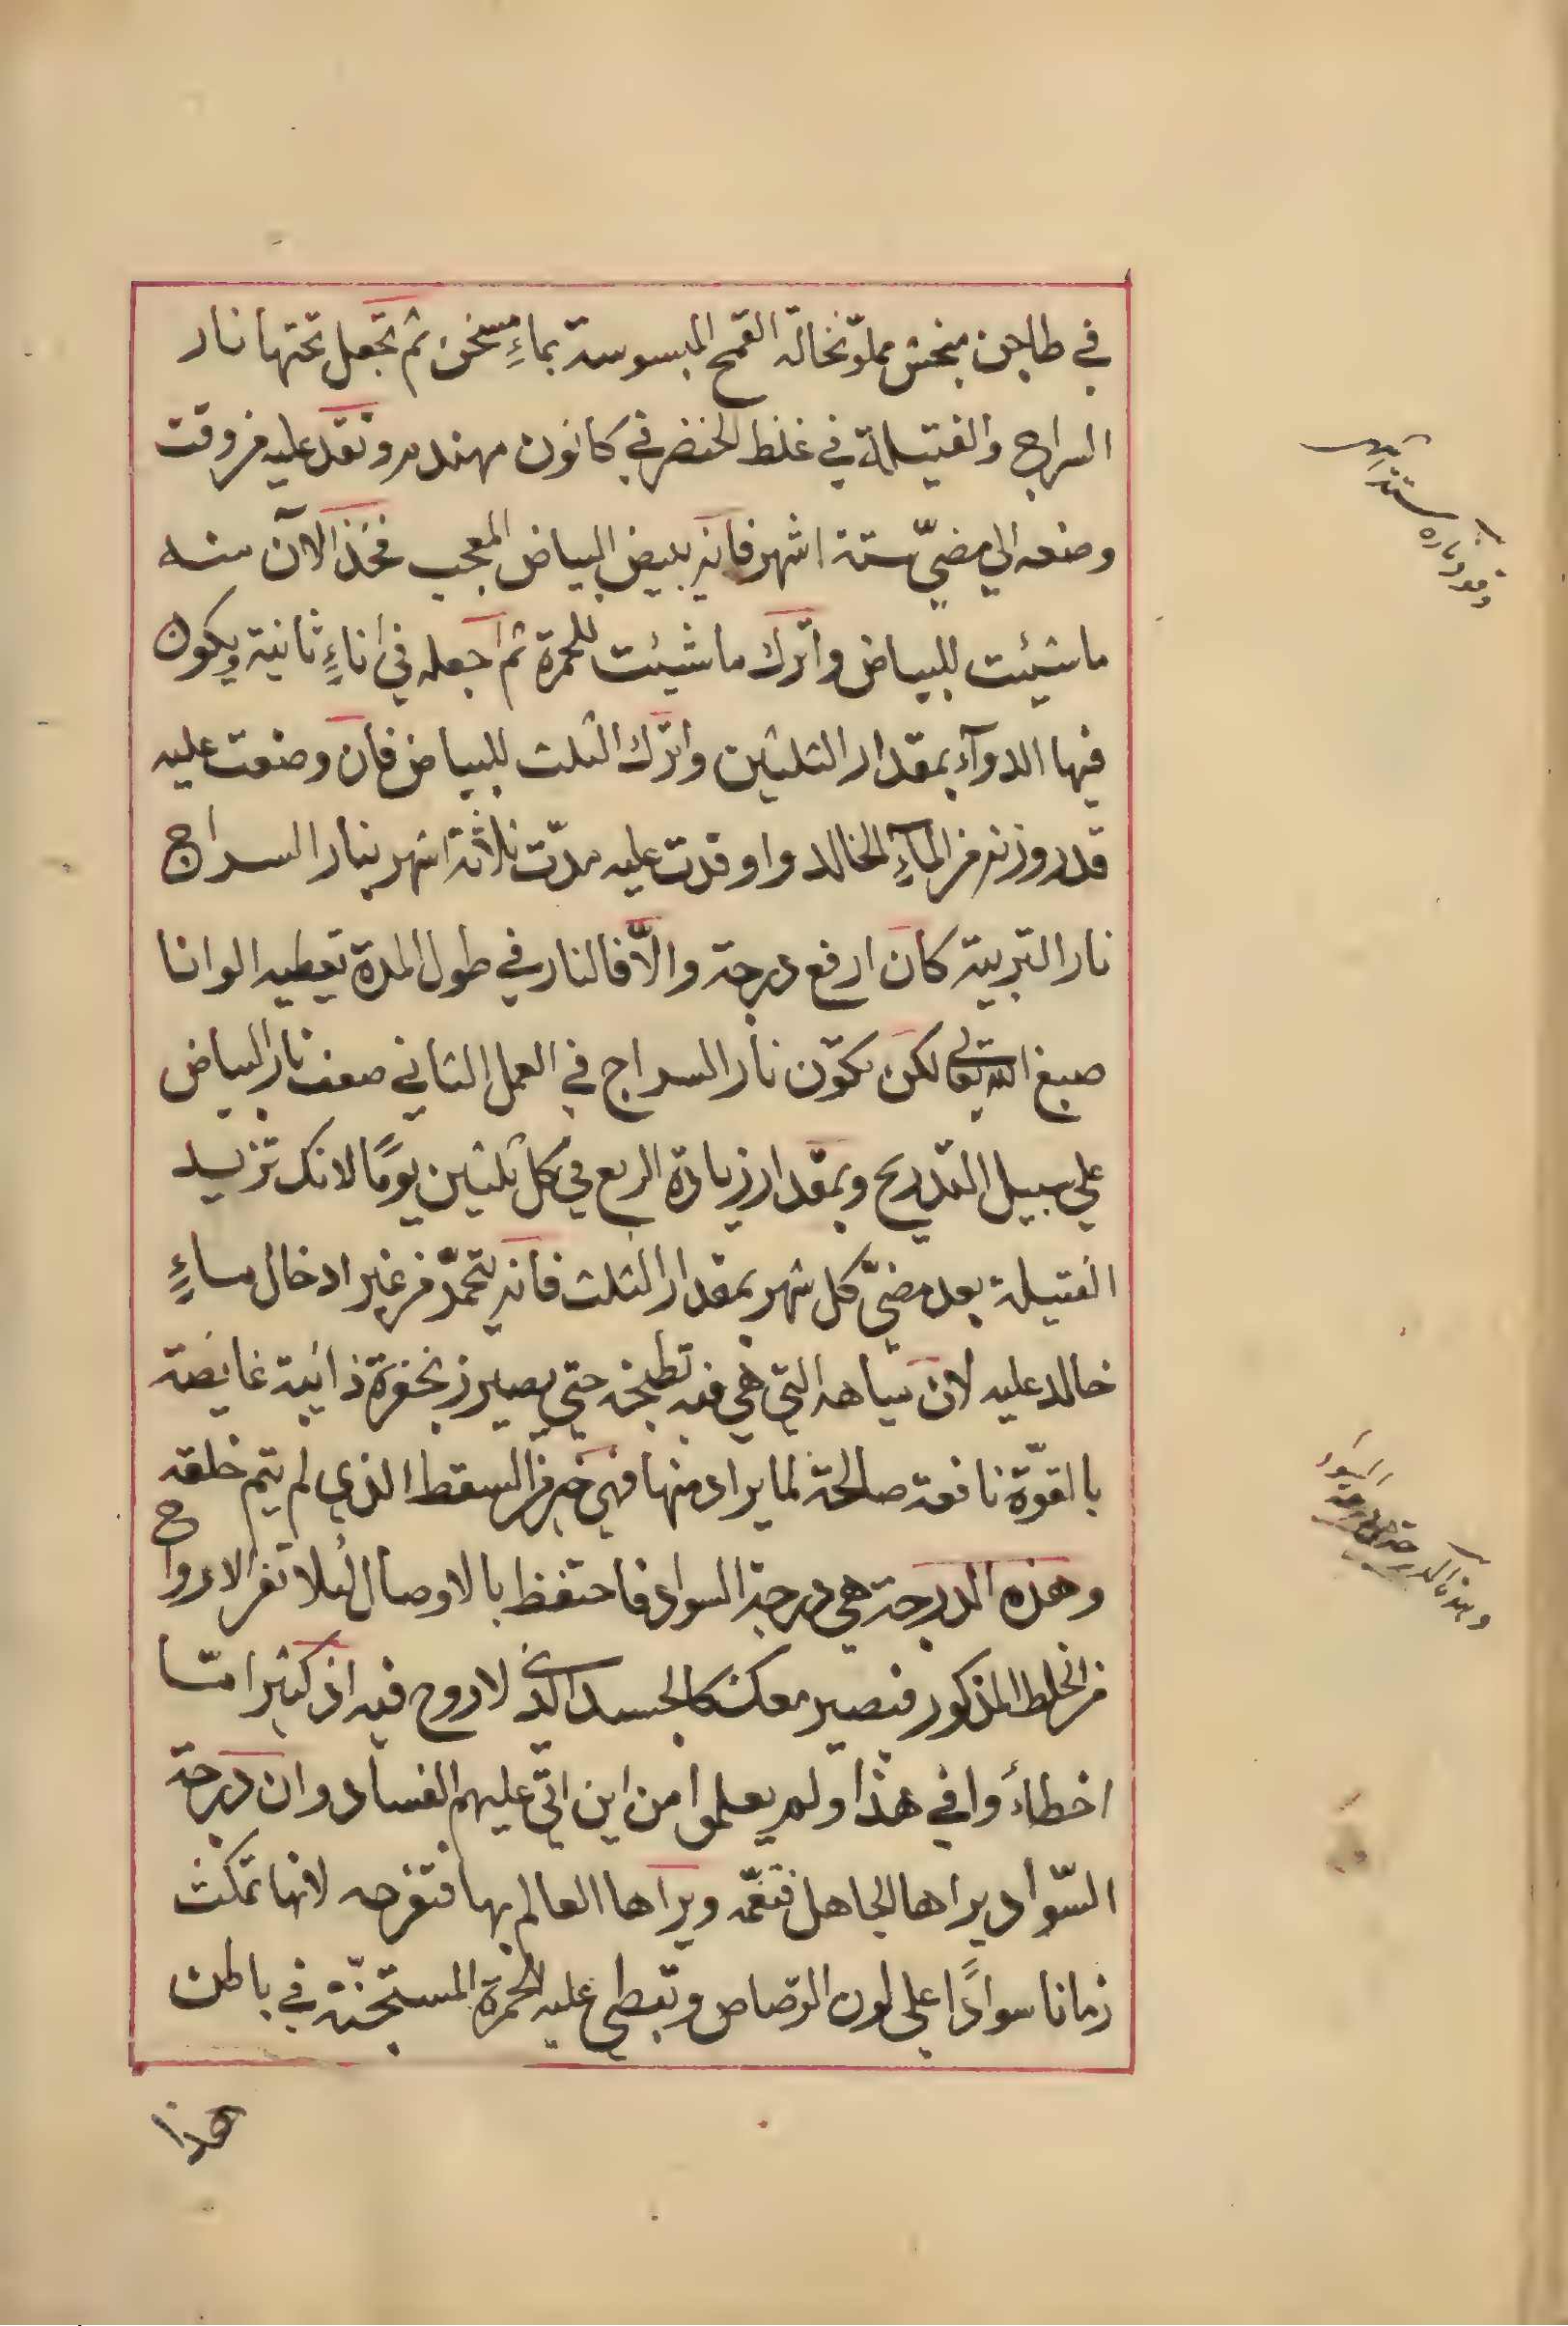 في طاجن منخش مملوّ نخالة القمح المبسوسة بماءٍ مسخن ثم تجعل تحتها نار
السراج والفتيلة في غلظ الخنضر في كانون مهندم وتقد عليه من وقت
وضعه الي مضيّ ستة اشهر فانه يبيض البياض المعجب فخذ الآن منه
ما شيئت للبياض واترك ما شيئت للحمرة ثم اجعله في اناءٍ ثانية ويكون
فيها الدوآء بمقدار الثلثين واترك الثلث للبياض فان وضعت عليه
قدر وزنه من المآءِ الخالد واوقدت عليه مدّت ثلاثة اشهر بنار السراج
نار التربية كان ارفع درجة والّا فالنار في طول المدة يعطيه الوانا
صبغ الله تعالي لكن تكوّن نار السراج في العمل الثاني ضعف نار البياض
علي سبيل التدريج وبمقدار زيادة الربع في كل ثلثين يومًا لانك تزيد
الفتيلة بعد مضيّ كل شهر بمقدار الثلث فانه يتحمّر من غير ادخال ماءٍ
خالد عليه لان مياهه التي هي فيه تطبخه حتي يصير زنجفرة ذائبة غايصة
بالقوّة نافعة صالحة لما يراد منها فهي خير من السقط الذي لم يتم خلقه
وهذه الدرجة هي درجة السواد فاحتفظ بالاوصال لئلا تفر الارواح
من الخلط المذكور فيصير معك كالجسد الذي لا روح فيه اذ كثيرا منا
اخطاءوا في هذا ولم يعلموا من اين اتي عليهم الفساد وان درجة
السّواد يراها الجاهل فتغمّه ويراها العالم بها فتفرحه لانها تمكث
زمانا سوادًا علي لون الرّصاص وتبطي عليه الحمرة المستجنّة في باطن
هذا